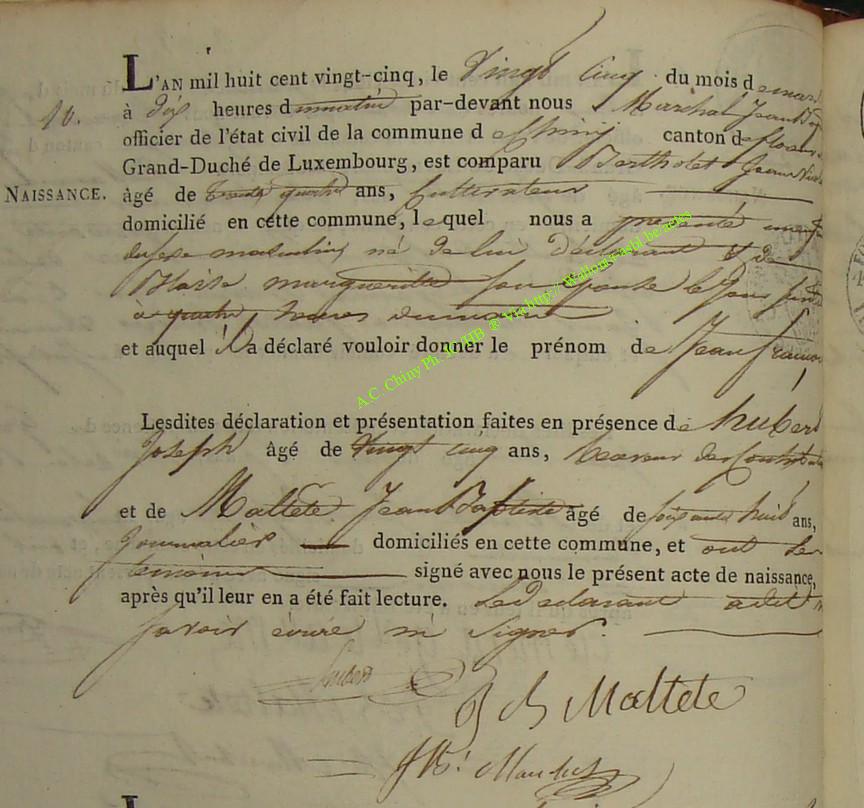 L'AN mil huit cent vingt-cinq, le vingt cinq du mois de mars
10. à dix heures du matin par-devant nous Maréchal Jean Bap
officier de l'état civil de la commune de Chiny canton de
Grand-Duché de Luxembourg, est comparu Bertholet Jean
NAISSANCE. âgé de trente quatre ans, Cultivateur
domicilié en cette commune, lequel nous a présenté
du sexe masculin né de lui déclarant & de
marguerite son épouse le jour
à quatre heures du matin
et auquel il a déclaré vouloir donner le prénom de Jean françois
Lesdites déclaration et présentation faites en présence de hubert
Joseph âgé de vingt cinq ans,
et de Maltete Jean Baptiste âgé de soixante huit ans,
Journalier domiciliés en cette commune, et ont les
temoins signé avec nous le présent acte de naissance,
après qu'il leur en a été fait lecture. Le déclarant a dit
savoir écrire ni signer.
hubert
Maltete
A.C. Chiny Ph.